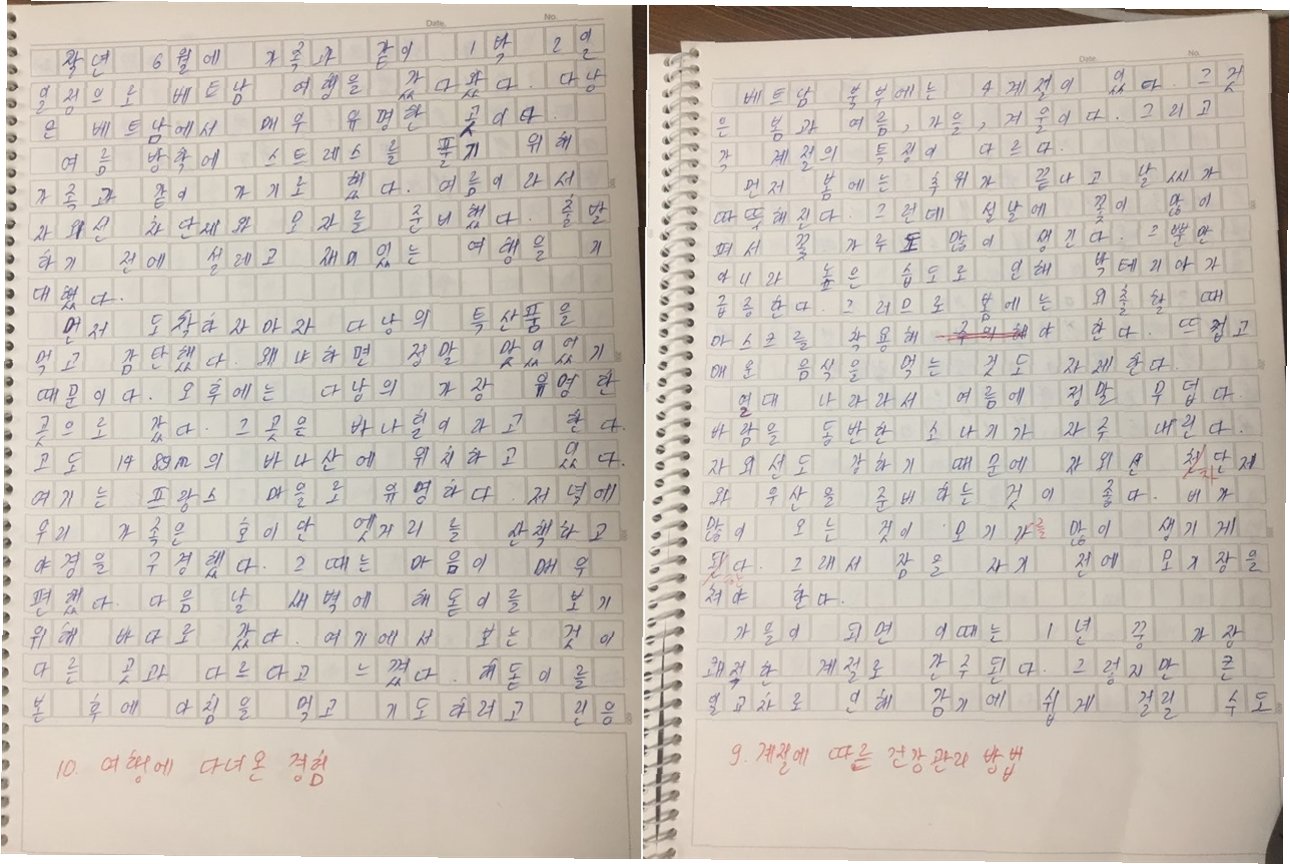 Date. No.
작년 6월에 가족과 같이 1박 2일
일정으로 베트남 여행을 갔다왔다. 다낭
은 베트남에서 매우 유명한 곳이다.
여름 방학에 스트레스를 풀기 위해
가족과 같이 가기로 했다. 여름이라서
자외선 차단제와 모자를 준비했다. 출발
하기 전에 설레고 재미있는 여행을 기
대했다.
먼저 도착하자마자 다낭의 특산품을
먹고 감탄했다. 왜냐하면 정말 맛있었기
때문이다. 오후에는 다낭의 가장 유명한
곳으로 갔다. 그 곳은 바나힐이라고 한다.
고도 1489m의 바나산에 위치하고 있다.
여기는 프랑스 마을로 유명하다. 저녁에
우리 가족은 호이안 옛거리를 산책하고
야경을 구경했다. 그때는 마음이 매우
편했다. 다음 날 새벽에 해돋이를 보기
위해 바다로 갔다. 여기에서 보는 것이
다른 곳과 다르다고 느꼈다. 해돋이를
본 후에 아침을 먹고 기도하러고 린응
10. 여행에 다녀온 경험
Date. No.
베트남 북부에는 4계절이 있다. 그것
은 봄과 여름, 가을, 겨울이다. 그리고
각 계절의 특징이 다르다.
먼저 봄에는 추위가 끝나고 날씨가
따뜻해진다. 그런데 설날에 꽃이 많이
펴서 꽃 가루도 많이 생긴다. 그뿐만
아니라 높은 습도로 인해 박테리아가
급증한다. 그러므로 봄에는 외출할 때
마스크를 착용해 주의해야 한다. 뜨겁고
매운 음식을 먹는 것도 자제한다.
열대 나라라서 여름에 정말 무덥다.
바람을 동반한 소나기가 자주 내린다.
자외선도 강하기 때문에 자외선 차단제
와 우산을 준비하는 것이 좋다. 비가
많이 오는 것이 모기가를 많이 생기게
된다. 그래서 잠을 자기 전에 모기장을
쳐야 한다.
가을이 되면 이때는 1년 중 가장
쾌적한 계절로 간주된다. 그렇지만 큰
일교차로 인해 감기에 쉽게 걸릴 수도
9. 계절에 따른 건강관리 방법